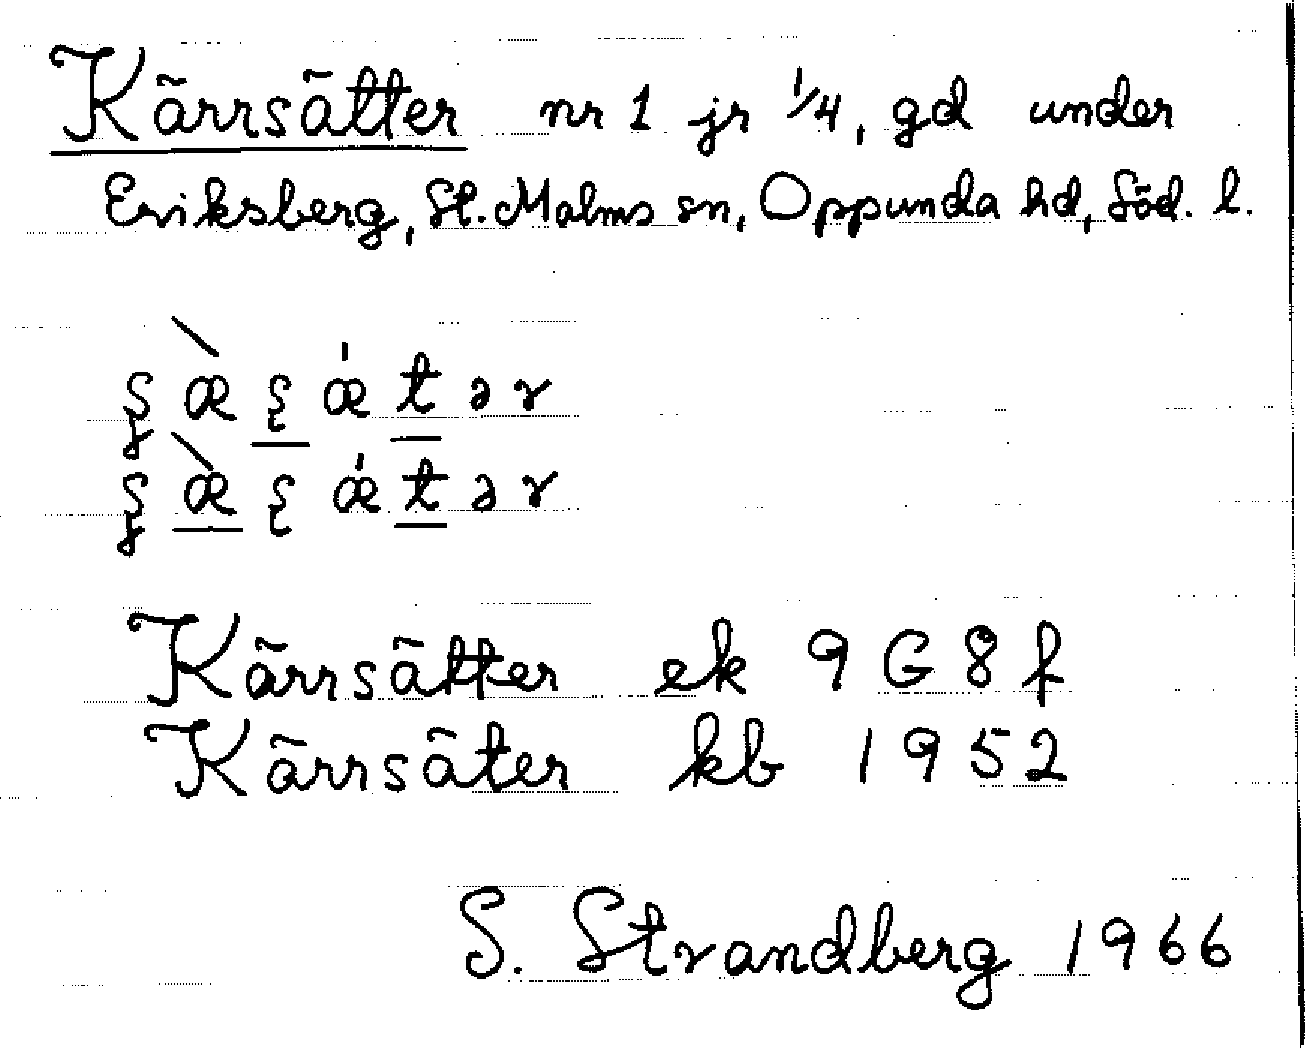 Kärrsätter nr 1 jr 1/4, gd under
Eriksberg, St. Malms sn, Oppunda hd, Söd. l.
ʂæ̀ʂǽtər
ʂæ̀ʂǽtər
Kärrsätter ek 9G8f
Kärrsäter kb 1952
S. Strandberg 1966